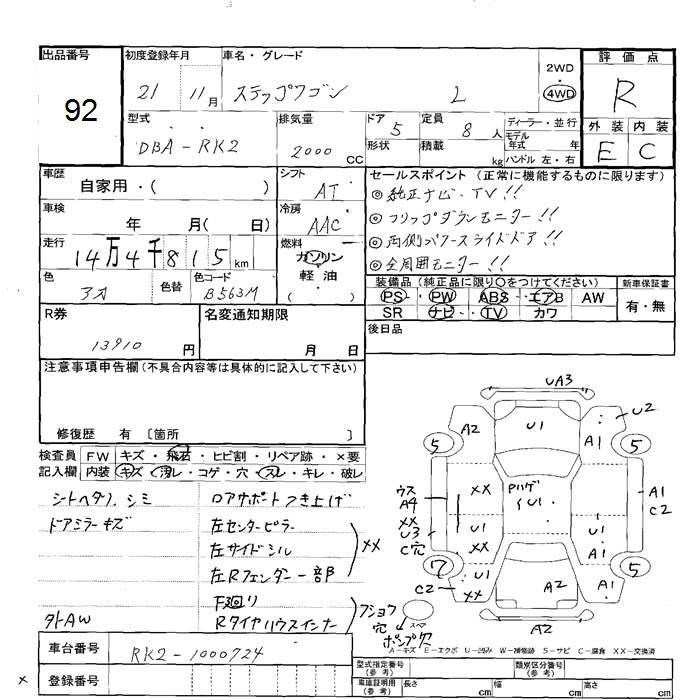 出品番号 初度登録年月 車名・グレード 評価点
92
21 11月 ステップワゴン L
2WD
・
4WD
R
型式 排気量 ドア 定員 ディーラー・並行
外装 内装
DBA-RK2 2000 CC 5 8人
モデル年式 年
形状 積載 kg ハンドル 左・右
E C
車歴 シフト セールスポイント(正常に機能するものに限ります)
自家用・( ) AT
◎純正ナビ・TV!!
車検 冷房
◎フリップダウンモニター!!
年 月( 日) AAC
◎両側パワースライドドア!!
走行 燃料
14万4千815km ガソリン
◎全周囲モニター!!
色 色替 色コード 軽油
アオ B563M ( )
装備品(純正品に限り○をつけてください) 新車保証書
PS・PW・ABS・エアB AW 有・無
SR ナビ・TV カワ
R券 名変通知期限 後日品
13910円 月 日
注意事項申告欄(不具合内容等は具体的に記入して下さい)
修復歴 有 〔箇所 〕
検査員 FW キズ・飛石・ヒビ割・リペア跡・×要
記入欄 内装 キズ・汚レ・コゲ・穴・スレ・キレ・破レ
シートヘタリ、シミ
ドアミラーキズ
外AW
ロアサポートつき上げ
左センターピラー
左サイドシル ××
左Rフェンダー一部
F廻り
Rタイヤハウスインナー
フショウ
穴
UA3
A2 U1 U2
A1
5 5
ウス
A4
××
U3
C穴
×× Pハゲ
U1
A1
C2
U1 U1
×× A1
7 5
U1 A2 A1
C2 ××
スペア
A2
A-キズ E-エクボ U-凹み W-補修跡 S-サビ C-腐食 XX-交換済
車台番号 RK2-1000724
型式指定番号(参考) 類別区分番号(参考)
× 登録番号
車庫証明用(参考) 長さ cm 幅 cm 高さ cm